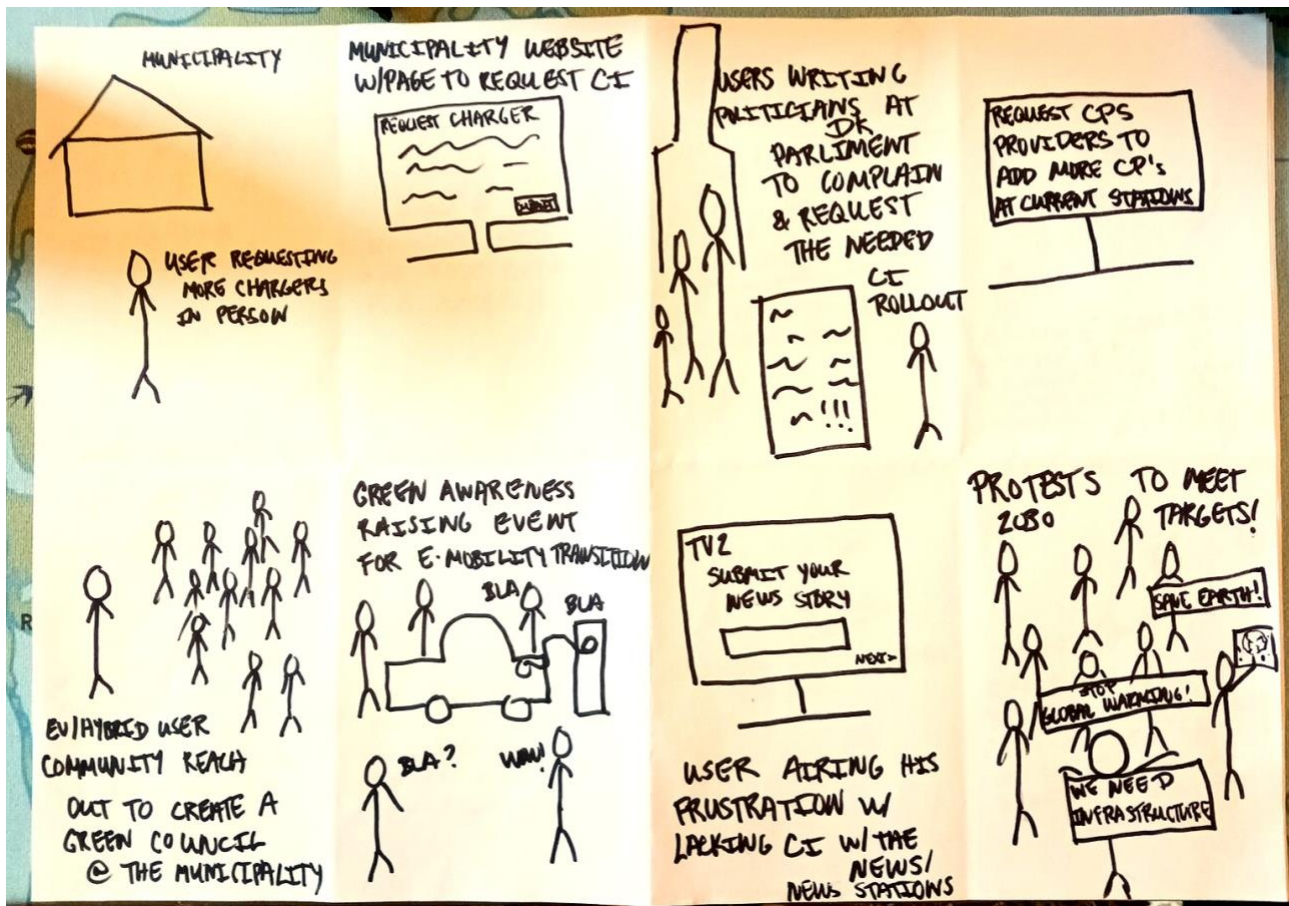 MUNICIPALITY
USER REQUESTING
MORE CHARGERS
IN PERSON
MUNICIPALITY WEBSITE
W/PAGE TO REQUEST CI
REQUEST CHARGER
SUBMIT
USERS WRITING
POLITICIANS AT
DK
PARLIMENT
TO COMPLAIN
& REQUEST
THE NEEDED
CI
ROLLOUT
!!!
REQUEST CPS
PROVIDERS TO
ADD MORE CP's
AT CURRENT STATIONS
EV/HYBRID USER
COMMUNITY REACH
OUT TO CREATE A
GREEN COUNCIL
@ THE MUNICIPALITY
GREEN AWARENESS
RAISING EVENT
FOR E-MOBILITY TRANSITION
BLA
BLA
BLA?
WOW!
TV2
SUBMIT YOUR
NEWS STORY
NEXT>
USER AIRING HIS
FRUSTRATION W/
LACKING CI W/THE
NEWS/
NEWS STATIONS
PROTESTS TO MEET
2030 TARGETS!
SAVE EARTH!
STOP
GLOBAL WARMING!
WE NEED
INFRASTRUCTURE